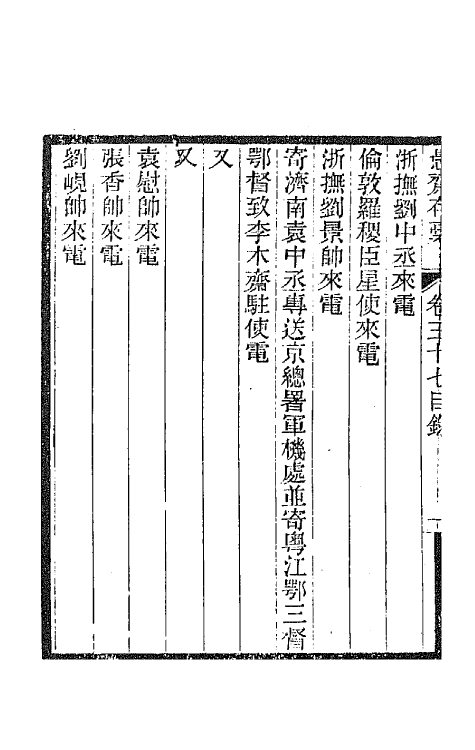 愚齋存藁 卷三十七目錄
浙撫劉中丞來電
倫敦羅稷臣星使來電
浙撫劉景帥來電
寄濟南袁中丞專送京總署軍機處並寄粵江鄂三督
鄂督致李木齋駐使電
又
又
袁慰帥來電
張香帥來電
劉峴帥來電